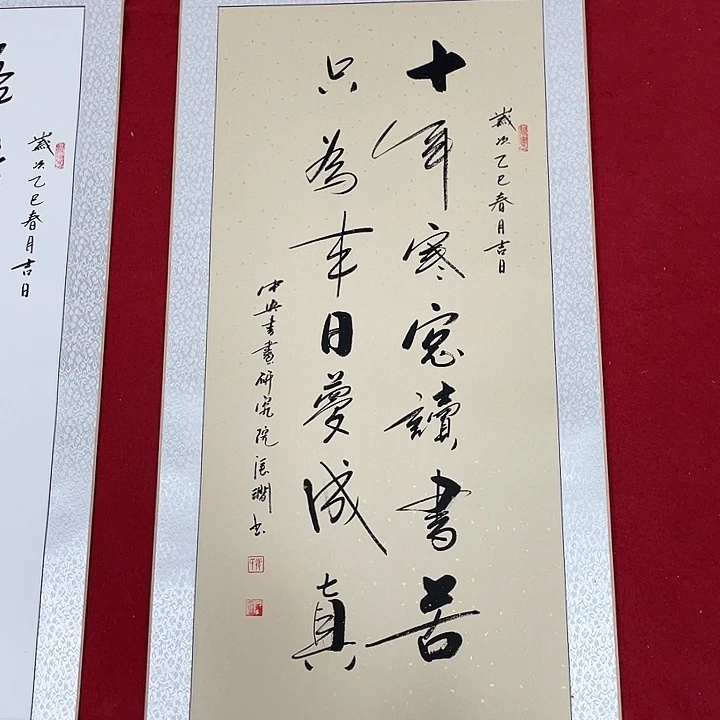 歲次乙巳春月吉日
十年寒窓讀書苦
只為来日夢成真
中央書畫研究院
歲次乙巳春月吉日